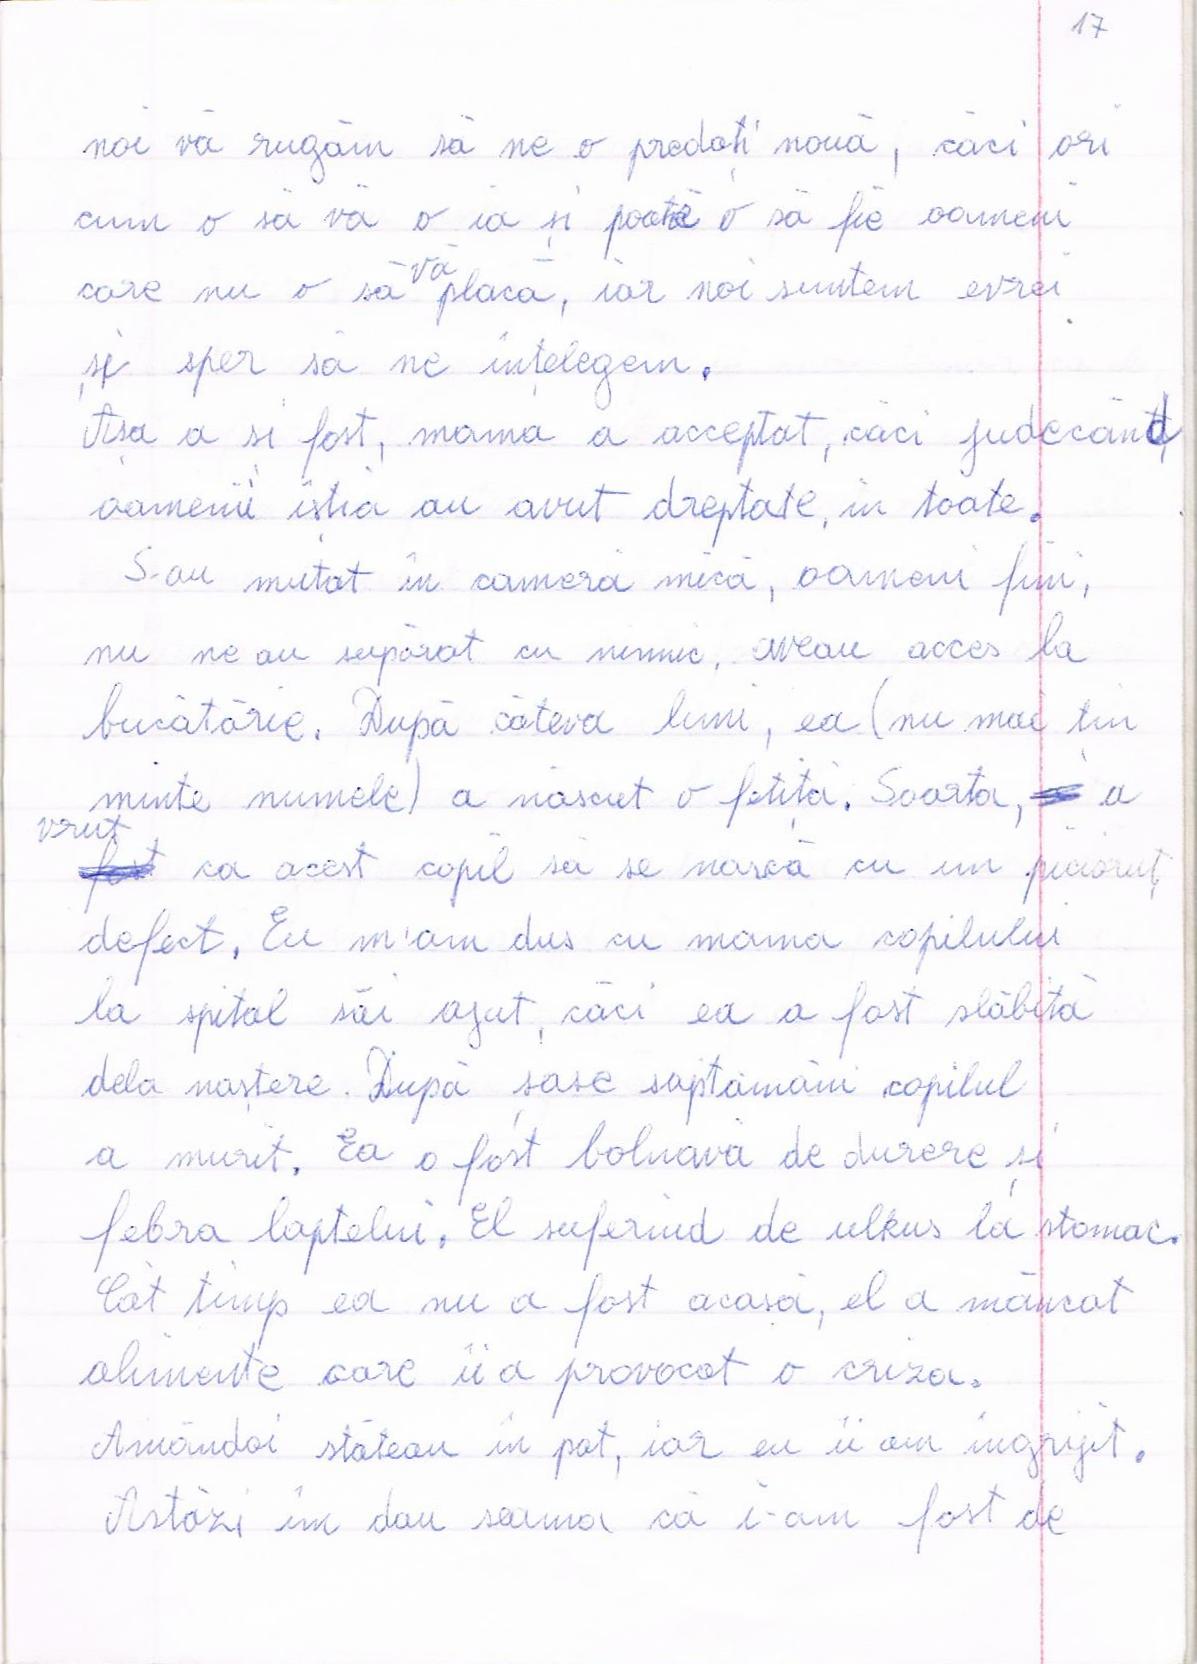 17
noi vă rugăm să ne o predați nouă, căci ori
cum o să vă o ia și poate o să fie oameni
care nu o să vă placă, iar noi suntem evrei
și sper să ne înțelegem.
Așa a și fost, mama a acceptat, căci judecând,
oamenii iștia au avut dreptate, în toate.
S-au mutat în camera mică, oameni fini,
nu ne au supărat cu nimic, aveau acces la
bucătărie. După câteva luni, ea (nu mai țin
minte numele) a născut o fetiță. Soarta, a
vrut ca acest copil să se nască cu un picioruț
defect. Eu m'am dus cu mama copilului
la spital săi ajut, căci ea a fost slăbită
dela naștere. După șase saptămâni copilul
a murit. Ea o fost bolnavă de durere și
febra laptelui. El suferind de ulkus la stomac.
Cât timp ea nu a fost acasă, el a mâncat
alimente care ii a provocat o criza.
Amândoi stăteau în pat, iar eu ii am ingrijit.
Astăzi îm dau seama că i-am fost de